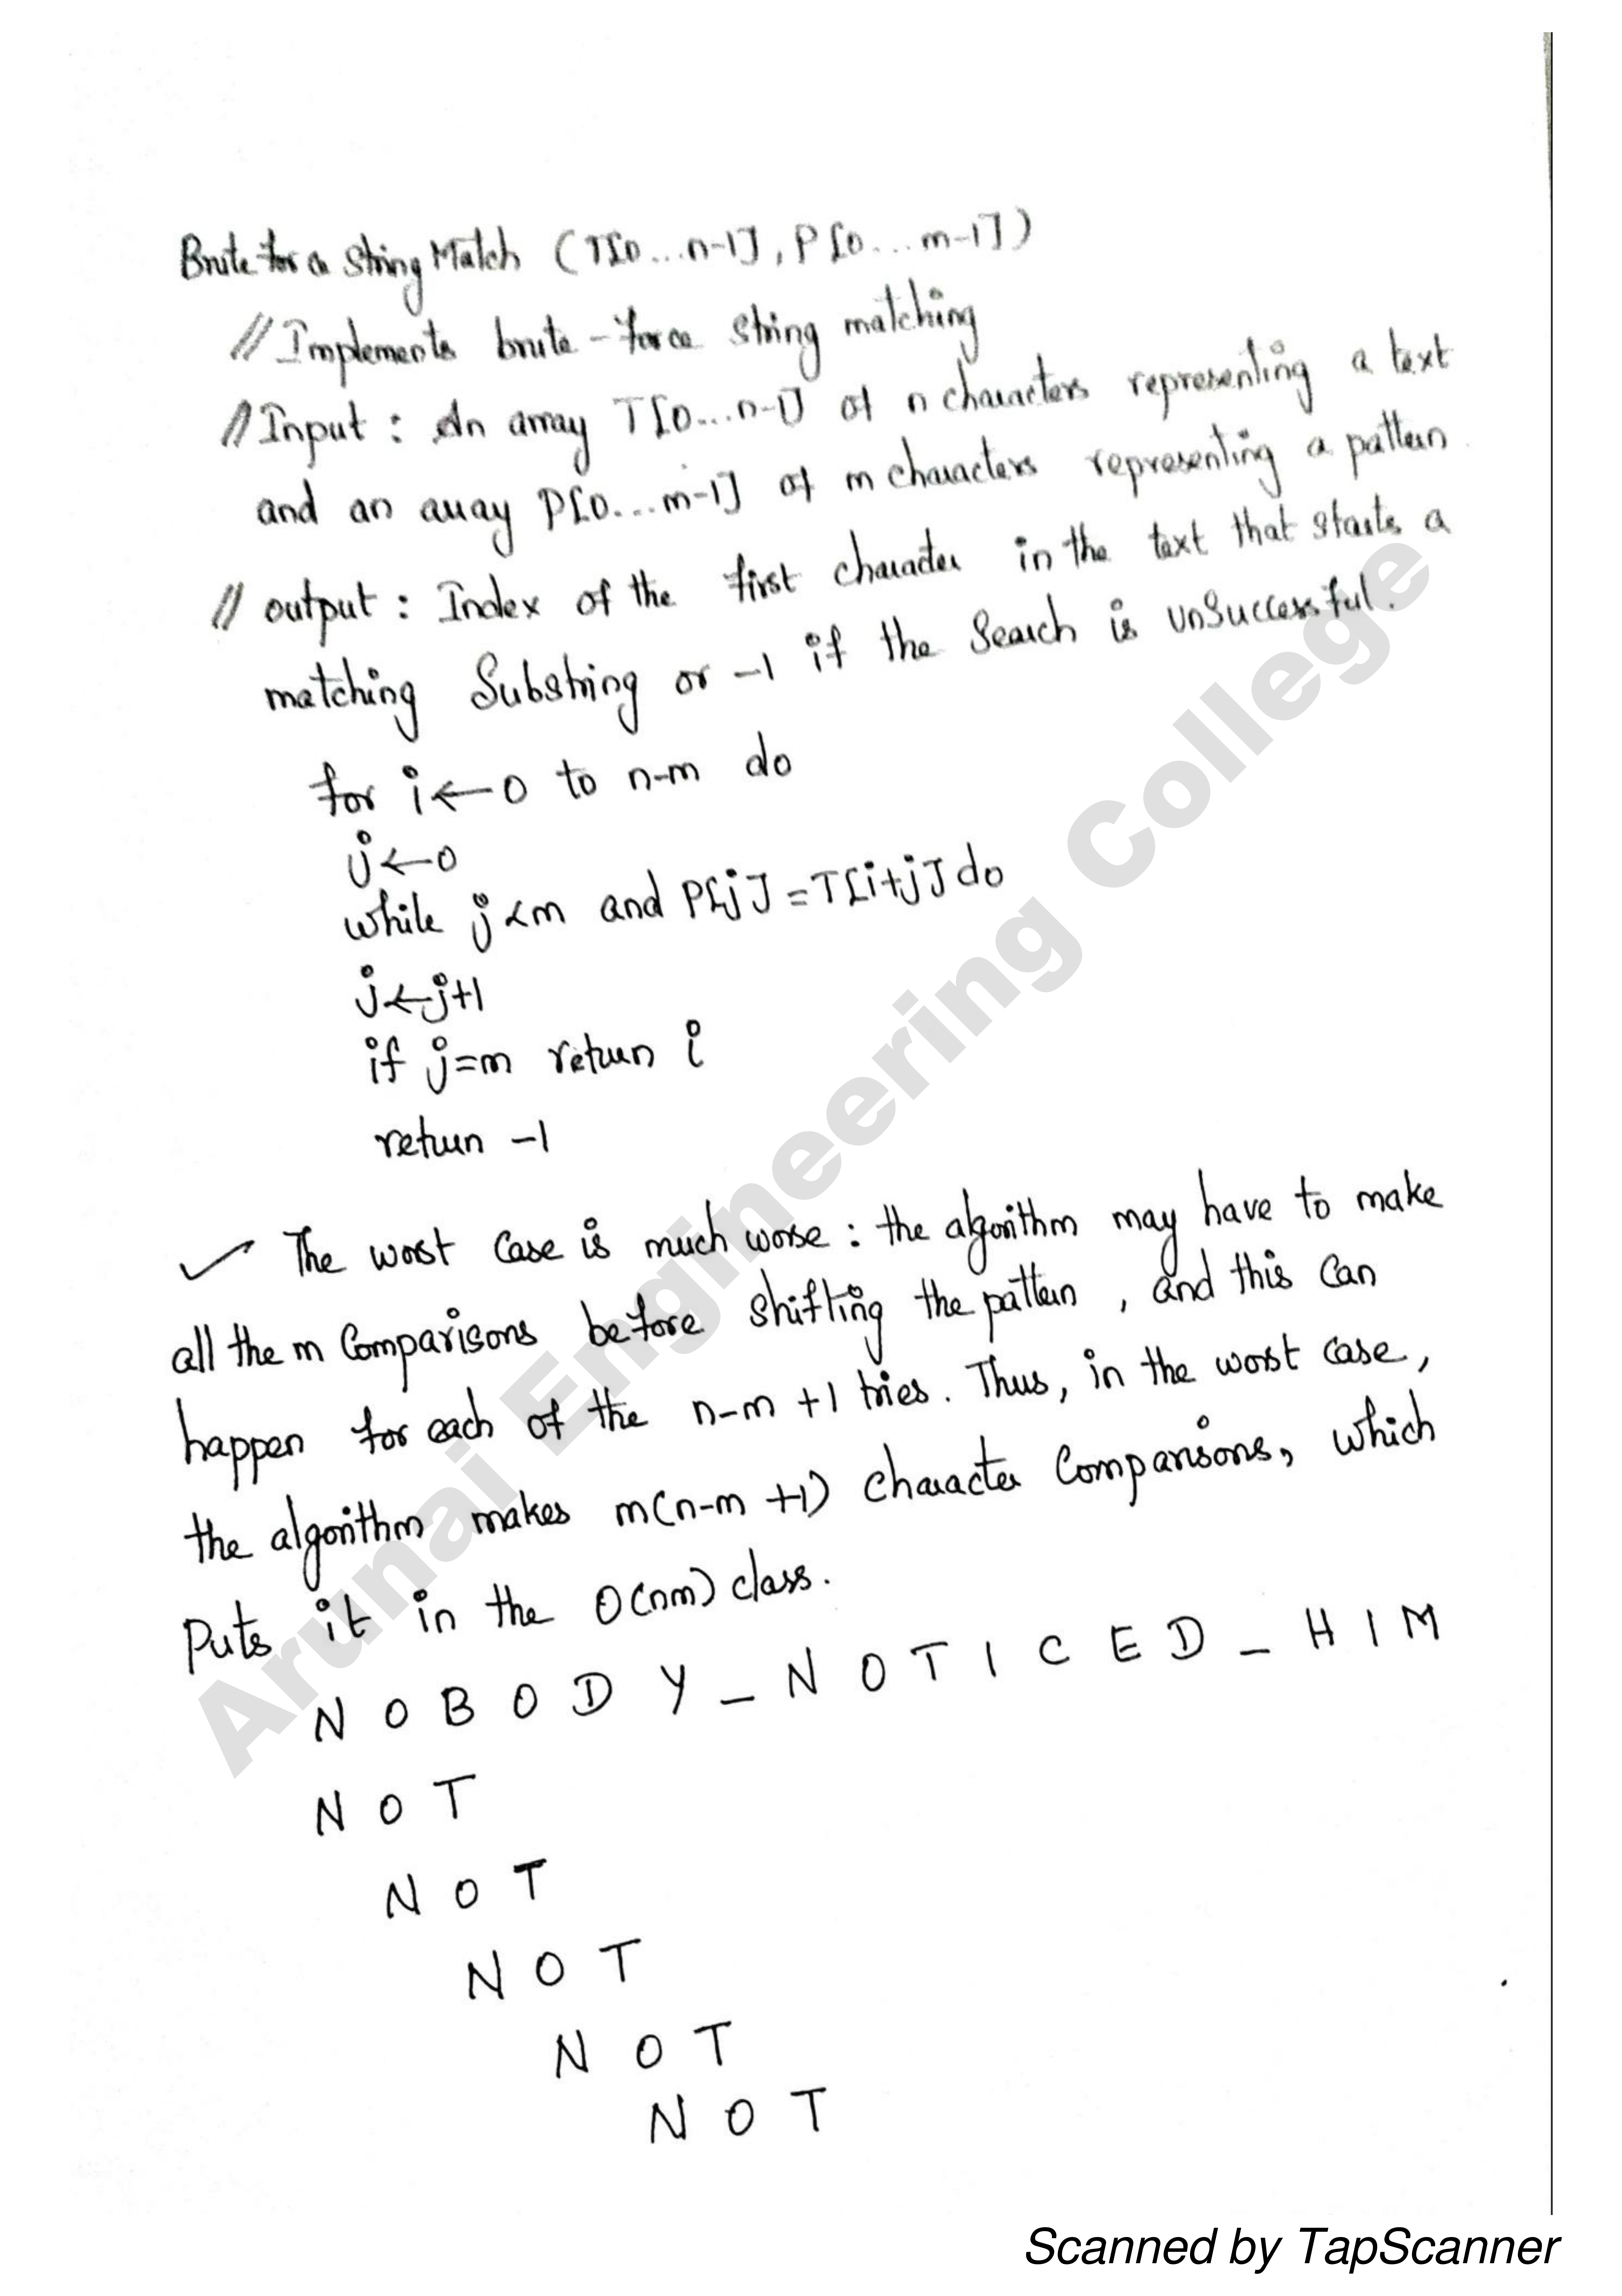 Brute for a String Match (T[0...n-1], P[0...m-1])
// Implements brute-force string matching
// Input : An array T[0...n-1] of n characters representing a text
and an array P[0...m-1] of m characters representing a pattern
// output : Index of the first character in the text that starts a
matching Substring or -1 if the Search is unSuccessful.
for i←0 to n-m do
j←0
while j<m and P[j]=T[i+j] do
j←j+1
if j=m return i
return -1
✓ The worst Case is much worse : the algorithm may have to make
all the m Comparisons before shifting the pattern , and this Can
happen for each of the n-m +1 tries. Thus, in the worst case,
the algorithm makes m(n-m +1) character Comparisons, which
Puts it in the O(nm) class.
N O B O D Y _ N O T I C E D _ H I M
N O T
N O T
N O T
N O T
N O T
Arunai Engineering College
Scanned by TapScanner